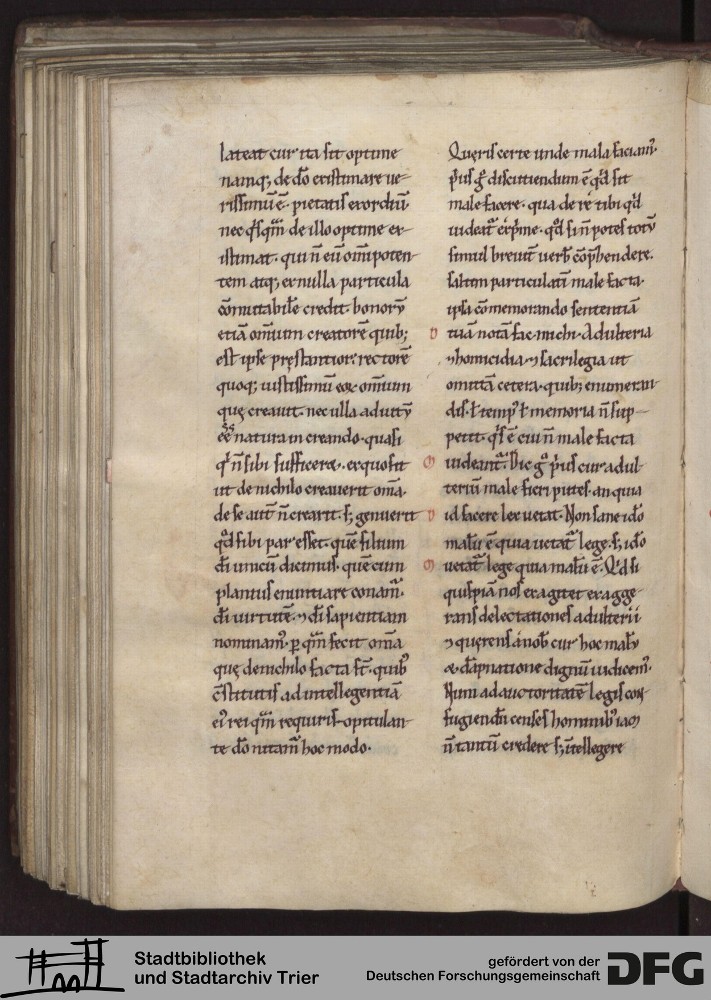 lateat cur ita sit optime
namq; de dō existimare ue-
rissimū ē· pietatis exordiū·
nec q̇sq̄m de illo optime ex-
istimat· qui n̄ eū om̄ipoten-
tem atq; ex nulla particula
cōmutabilē credit· bonorꝝ
etiā omniū creatorē quib;
est ipse pręstantior· rectorē
quoq; iustissimū eoꝝ omniū
quę creauit· nec ulla adiutꝰ
eē natura in creando· quasi
q̇ n̄ sibi sufficeret· ex quo fit
ut de nichilo creauerit om̄a·
de se aut̄ n̄ crearit· s; genuerit
qd̄ sibi par esset· quē filium
dī unicū dicimus· quē cum
planius enuntiare conam̄·
dī uirtutē· ⁊ dī sapientiam
nominam̄· ꝑ quē fecit om̄a
quę de nichilo facta st̄· quibꝰ
c̄stitutis ad intellegentiā
eiꝰ rei quā requiris· opitulan-
te dō nitam̄ hoc modo·
Queris certe unde mala faciam̄·
p̄us g̊ discutiendum ē qd̄ sit
male facere· qua de re tibi qd̄
uideat̄ exp̄me· qd̄ si n̄ potes totū
simul breuit̄ uerb̄ cōp̄hendere·
saltem particulatī male facta·
ipsa cōmemorando sententiā
tuā notā fac michi· Adulteria
⁊ homicidia· ⁊ sacrilegia ut
omittā cetera· quib; enumeran-
dis· ł tempꝰ ł memoria n̄ sup-
petit· q̇s ē cui n̄ male facta
uideant̄· Dic g̊ p̄us cur adul-
teriū male fieri putes· an quia
id facere lex uetat· Non sane idō
malū ē quia uetat̄ lege· s; idō
uetat̄ lege quia malū ē· Qd̄ si
quispiā nos exagitet exagge-
rans delectationes adulterii
⁊ querens a nob̄ cur hoc malū
⁊ dāpnatione dignū iudicem̄·
Num ad auctoritatē legis con-
fugiendū censes hominibꝰ iā
n̄ tantū credere s; intellegere
Stadtbibliothek
und Stadtarchiv Trier
gefördert von der
Deutschen Forschungsgemeinschaft
DFG